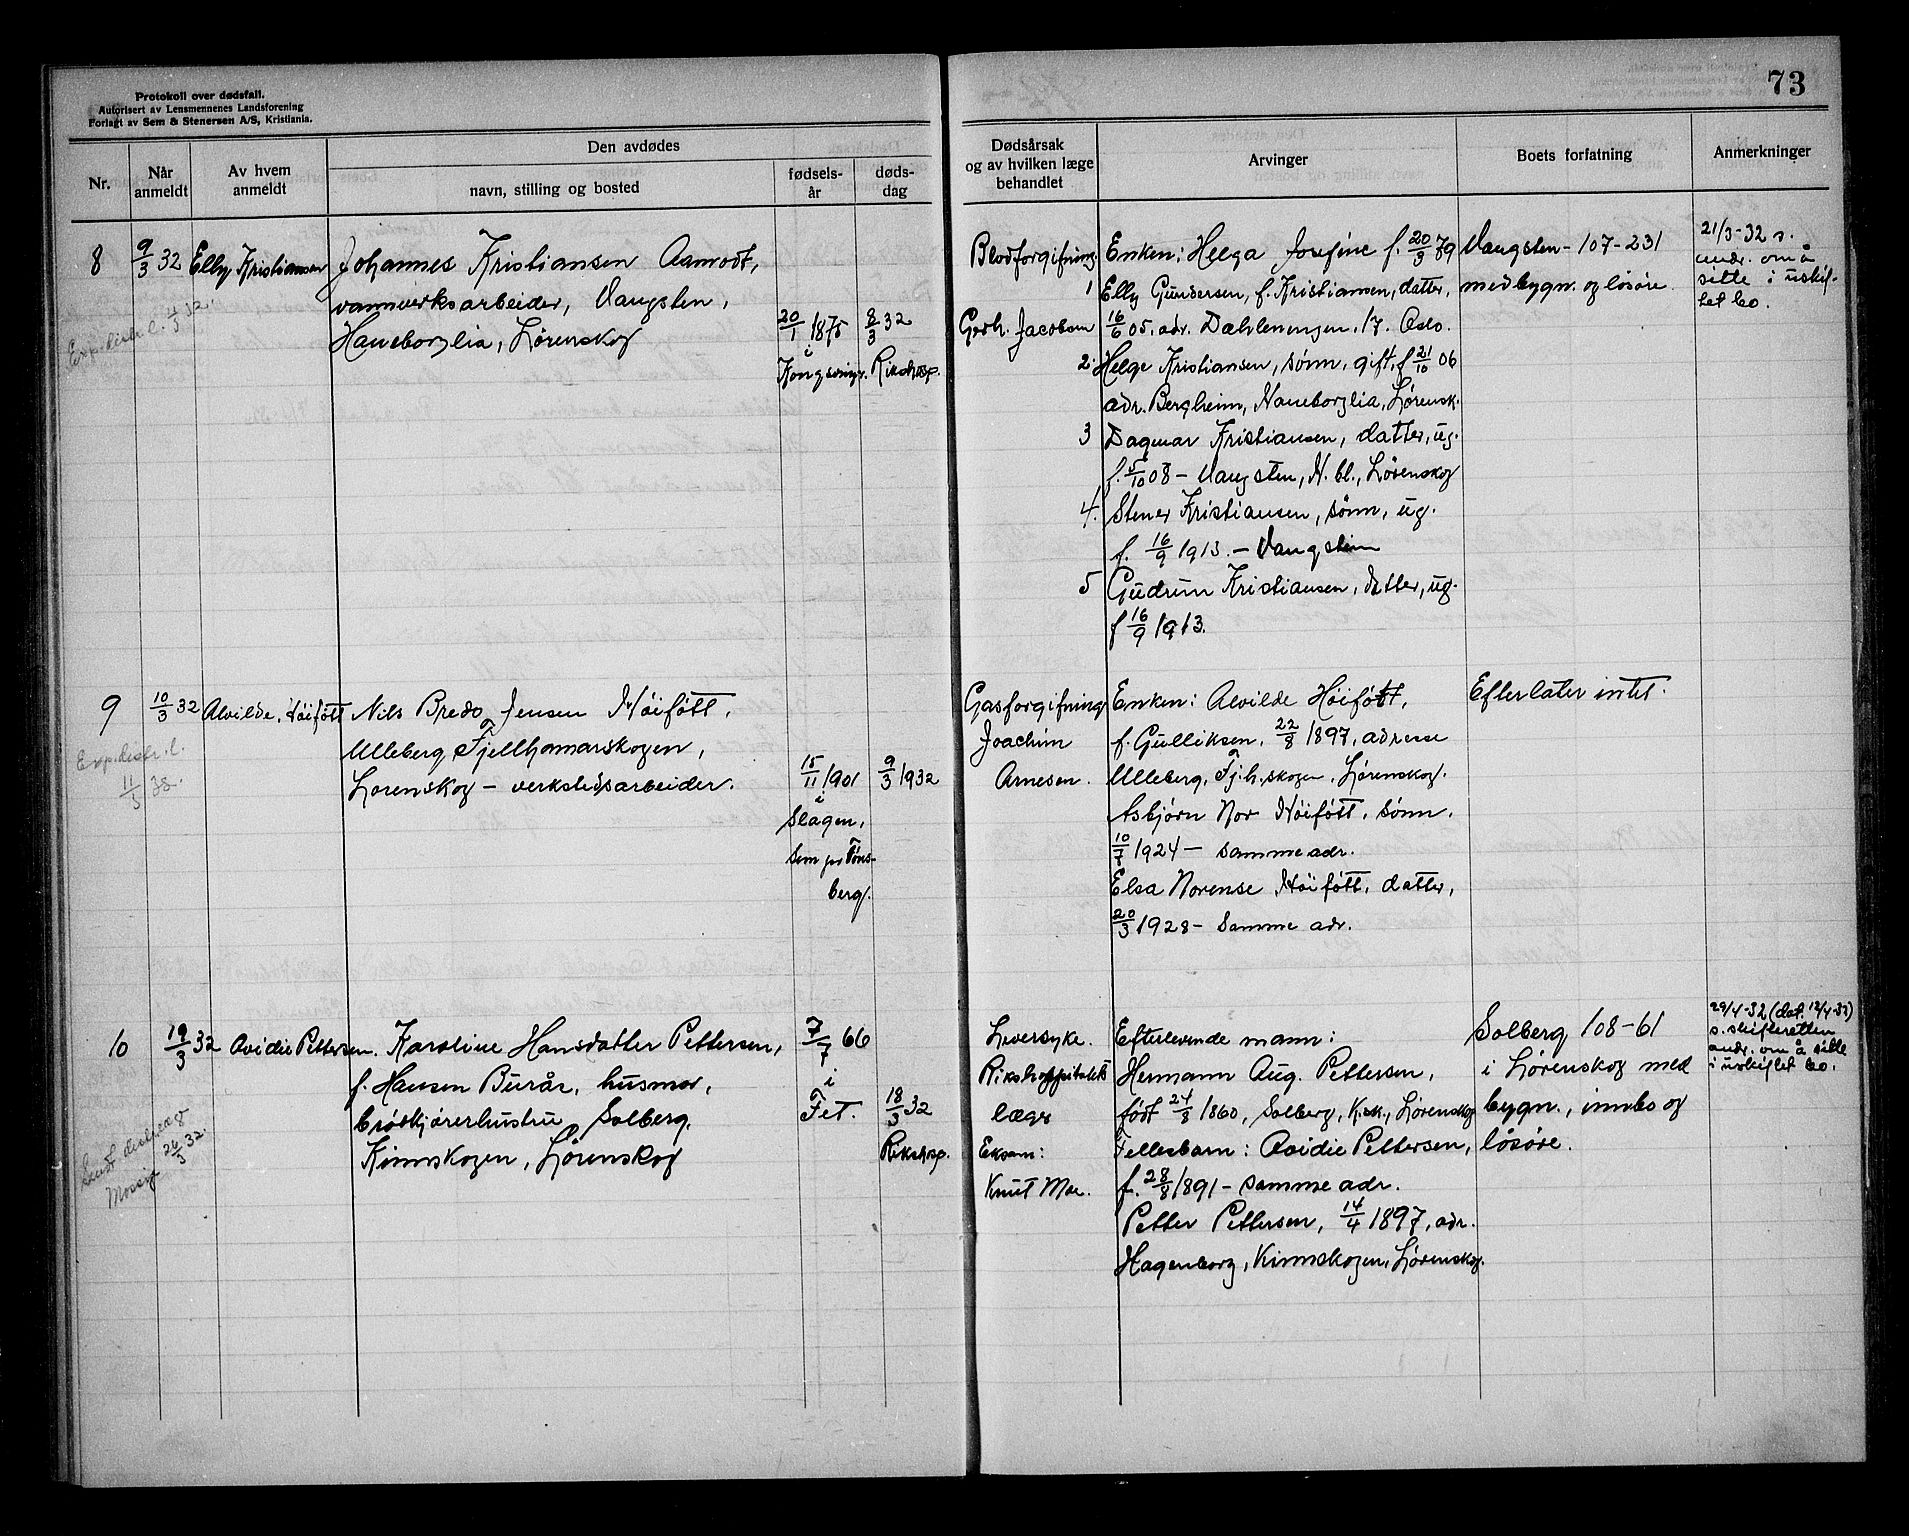 Protokoll over dødsfall.
Autorisert av Lensmennenes Landsforening
Forlagt av Sem & Stenersen A/S, Kristiania.
73
Nr.
Når anmeldt
Av hvem anmeldt
Den avdødes
navn, stilling og bosted
fødsels-år
døds-dag
Dødsårsak
og av hvilken læge
behandlet
Arvinger
Boets forfatning
Anmerkninger
8
9/3 32
Elly Kristiansen
Johannes Kristiansen Aamodt,
vannverksarbeider, Vangsten,
Haneborglia, Lørenskog
20/1 1875
i
Kongsving.
8/3 32
Rikshosp.
Blodforgifning.
Godh. Jacobsen
Enken: Helga Josefine f. 20/3 79
1 Elly Gundersen, f. Kristiansen, datter,
16/6 05, adr. Dahlenengen, 17. Oslo.
2 Helge Kristiansen, sønn, gift, f 21/10 06
adr. Bergheim, Haneborglia, Lørensk.
3 Dagmar Kristiansen, datter, ug.
f. 5/10 08 - Vangsten, H. bl., Lørenskog
4. Stener Kristiansen, sønn, ug.
f. 16/9 1913. - Vangstein
5 Gudrun Kristiansen, datter, ug.
f 16/9 1913.
Vangsten - 107-231
med bygn. og løsøre.
21/3-32 s.
andr. om å
sitte i uskif-
tet bo.
Exp. distr. l. 4/3 32.
9
10/3 32
Alvilde Höifött
Nils Bredo Jensen Höifött,
Ulleberg, Fjellhamarskogen,
Lørenskog - verkstedsarbeider.
15/11 1901
i
Slagen,
Sem pr Töns-
berg.
9/3 1932
Gasforgifning
Joachim
Arnesen.
Enken: Alvilde Höifött,
f. Gulliksen, 22/8 1897, adresse
Ulleberg, Fj.h.skogen, Lørenskog.
Asbjørn Nor Höifött, sønn.
10/7 1924 - samme adr.
Elsa Norense Höifött, datter,
20/3 1928 - Samme adr.
Efterlater intet.
Exp. distr. l.
10
19/3 32
Ovidie Pettersen.
Karoline Hansdatter Pettersen,
f. Hansen Burår, husmor,
brøskjørerhustru Solberg,
Kinnskogen, Lørenskog
7/7 66
i
Fet.
18/3 32
Rikshosp.
Leversyke.
Rikshospitalets
læge
Eksam:
Knut Moe.
Efterlevende mann:
Hermann Aug. Pettersen,
født 24/8 1860, Solberg, K.sk., Lørenskog
Fellesbarn: Ovidie Pettersen,
f. 28/8 1891 - samme adr.
Petter Pettersen, 14/4 1897, adr.
Hagenborg, Kinnskogen, Lørenskog.
Solberg 108-61
i Lørenskog med
bygn., innbo og
løsøre.
29/4-32 (dat. 12/4-32)
s. skifteretten
andr. om å sitte
i uskiftet bo.
26/3 32.